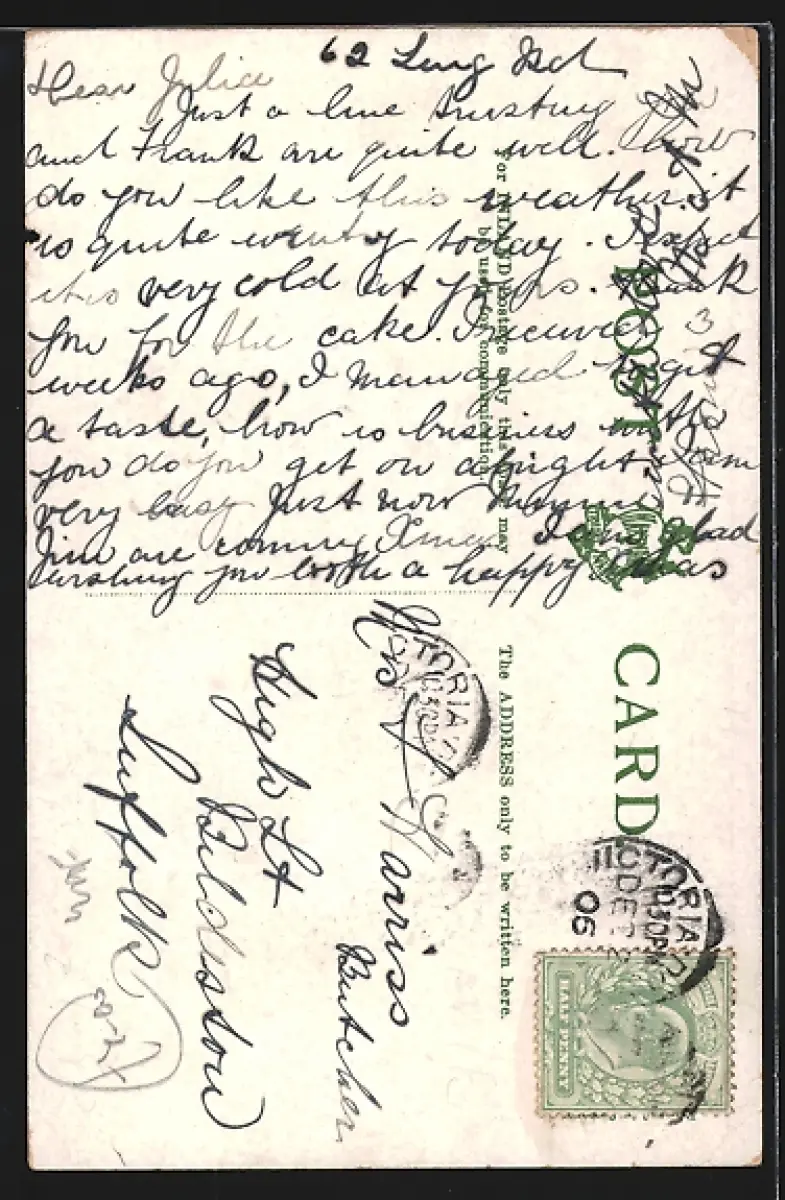 62 Long
Dear Julia
Just a line trusting you
and Frank are quite well. how
do you like this weather. it
is quite windy today. I expect
it is very cold at yours. Thank
you for the cake. I received 3
weeks ago, I managed to get
a taste, how is business with
you do you get on alright. I am
very busy just now Mammy
Jim are coming Xmas I am glad
wishing you both a happy Xmas
POST CARD
For INLAND Postage only this Space may
be used for communication.
The ADDRESS only to be written here.
Harriss
Butcher
High St
Bildeston
Suffolk
VICTORIA
10.30PM
DE 22
06
11
HALF PENNY